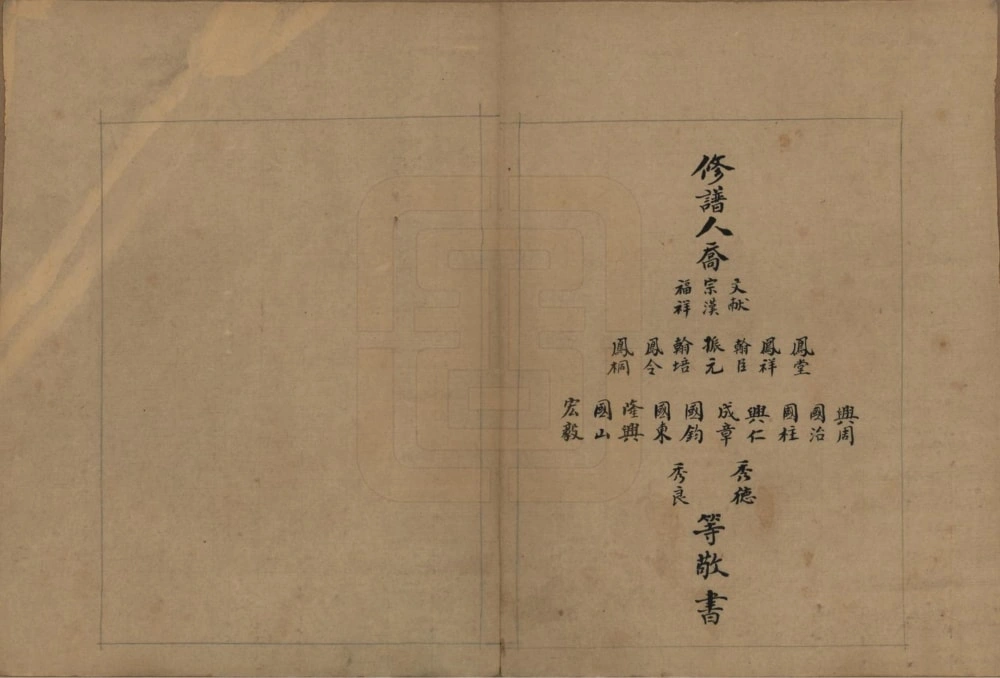 修譜人喬
文献 宗漢 福祥
鳳堂 鳳祥 翰臣 振元 翰培 鳳令 鳳桐
興周 國治 國柱 興仁 成章 國鈞 國東 隆興 國山 宏毅
秀德 秀良
等敬書